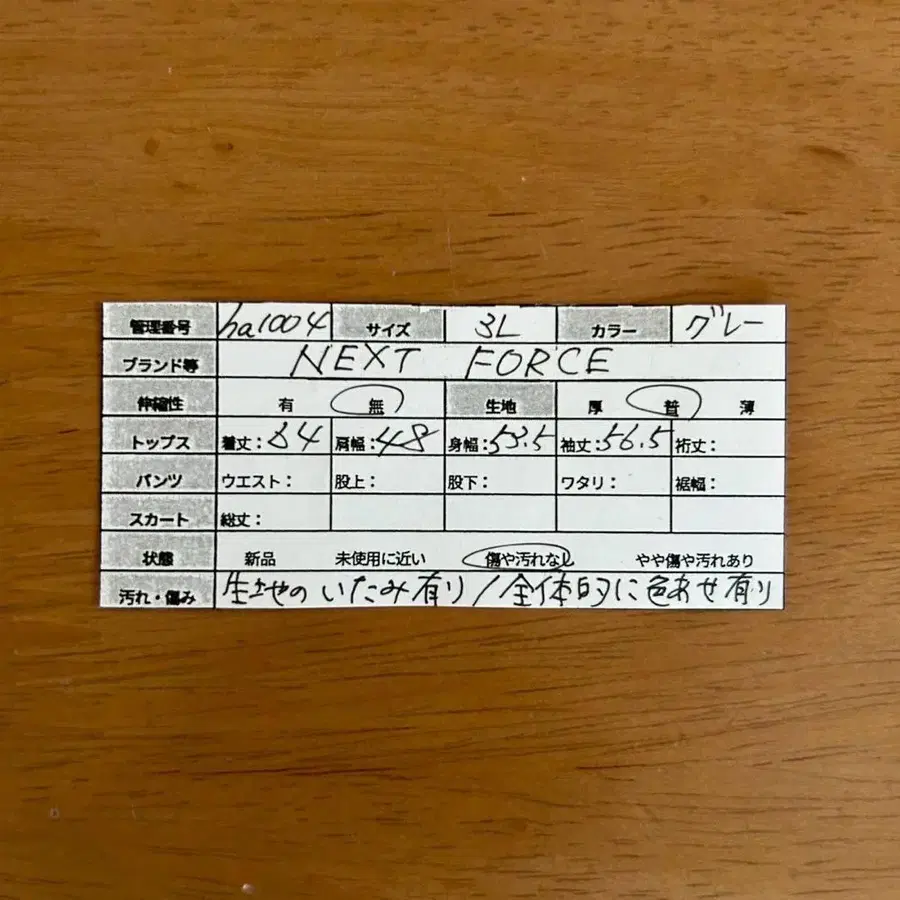 管理番号 ha1004 サイズ 3L カラー グレー
ブランド等 NEXT FORCE
伸縮性 有 無 生地 厚 普 薄
トップス 着丈:84 肩幅:48 身幅:53.5 袖丈:56.5 裄丈:
パンツ ウエスト: 股上: 股下: ワタリ: 裾幅:
スカート 総丈:
状態 新品 未使用に近い 傷や汚れなし やや傷や汚れあり
汚れ・傷み 生地のいたみ有り/全体的に色あせ有り